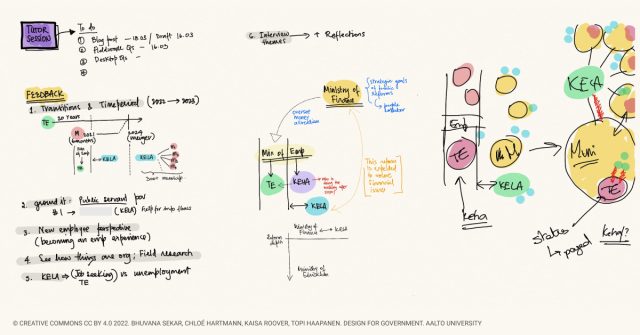 TUTOR SESSION
To do
① Blog post - 18.03 / Draft 16.03
② Fieldwork Qs - 16.03
③ Desktop Qs -
④
FEEDBACK
1. Transitions & Timeperiod (2022 → 2023)
20 years
TE
M
2021
2024
(merger)
KELA
KELA
2. ground it: Public servant pov
#1 → (KELA)
3. New employee perspective
(becoming an emp experience)
4. See how things are org; Field research
5. KELA → (Job seeking) vs unemployment
TE
6. Interview themes → + Reflections
Ministry of Finance
strategic goals of public reforms
Min of Emp
TE
KEHA
KELA
This reform is expected to solve financial issues
Reform depth
Ministry of Finance
KELA
Ministry of Education
Emp
TE
M
KELA
Keha
KELA
Muni
TE
status
↳ payed
Keha!?
© CREATIVE COMMONS CC BY 4.0 2022. BHUVANA SEKAR, CHLOÉ HARTMANN, KAISA ROOVER, TOPI HAAPANEN. DESIGN FOR GOVERNMENT. AALTO UNIVERSITY